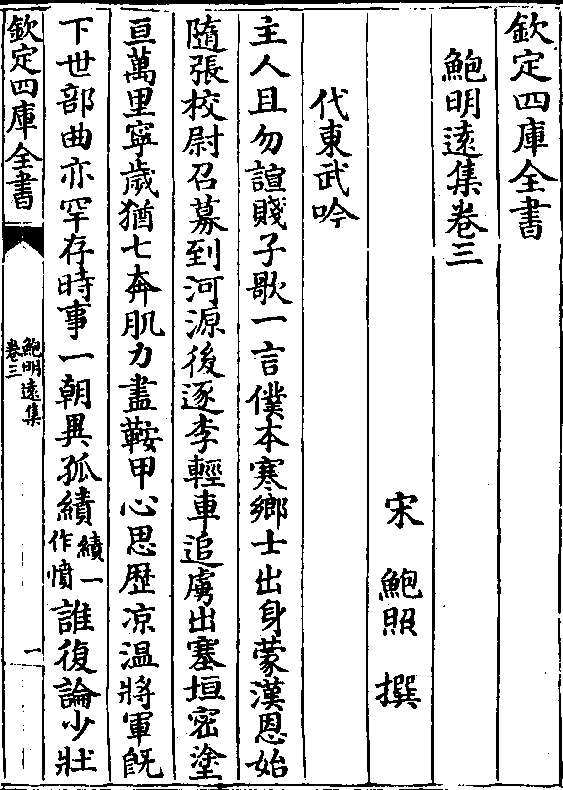 欽定四庫全書
鮑明遠集卷三
宋 鮑照 撰
代東武吟
主人且勿諠賤子歌一言僕本寒鄉士出身蒙漢恩始
隨張校尉召募到河源後逐李輕車追虜出塞垣密塗
亘萬里寧歲猶七奔肌力盡鞍甲心思歴凉溫將軍旣
下世部曲亦罕存時事一朝異孤績績一作憤誰復論少壯
欽定四庫全書
鮑明遠集
卷三
一